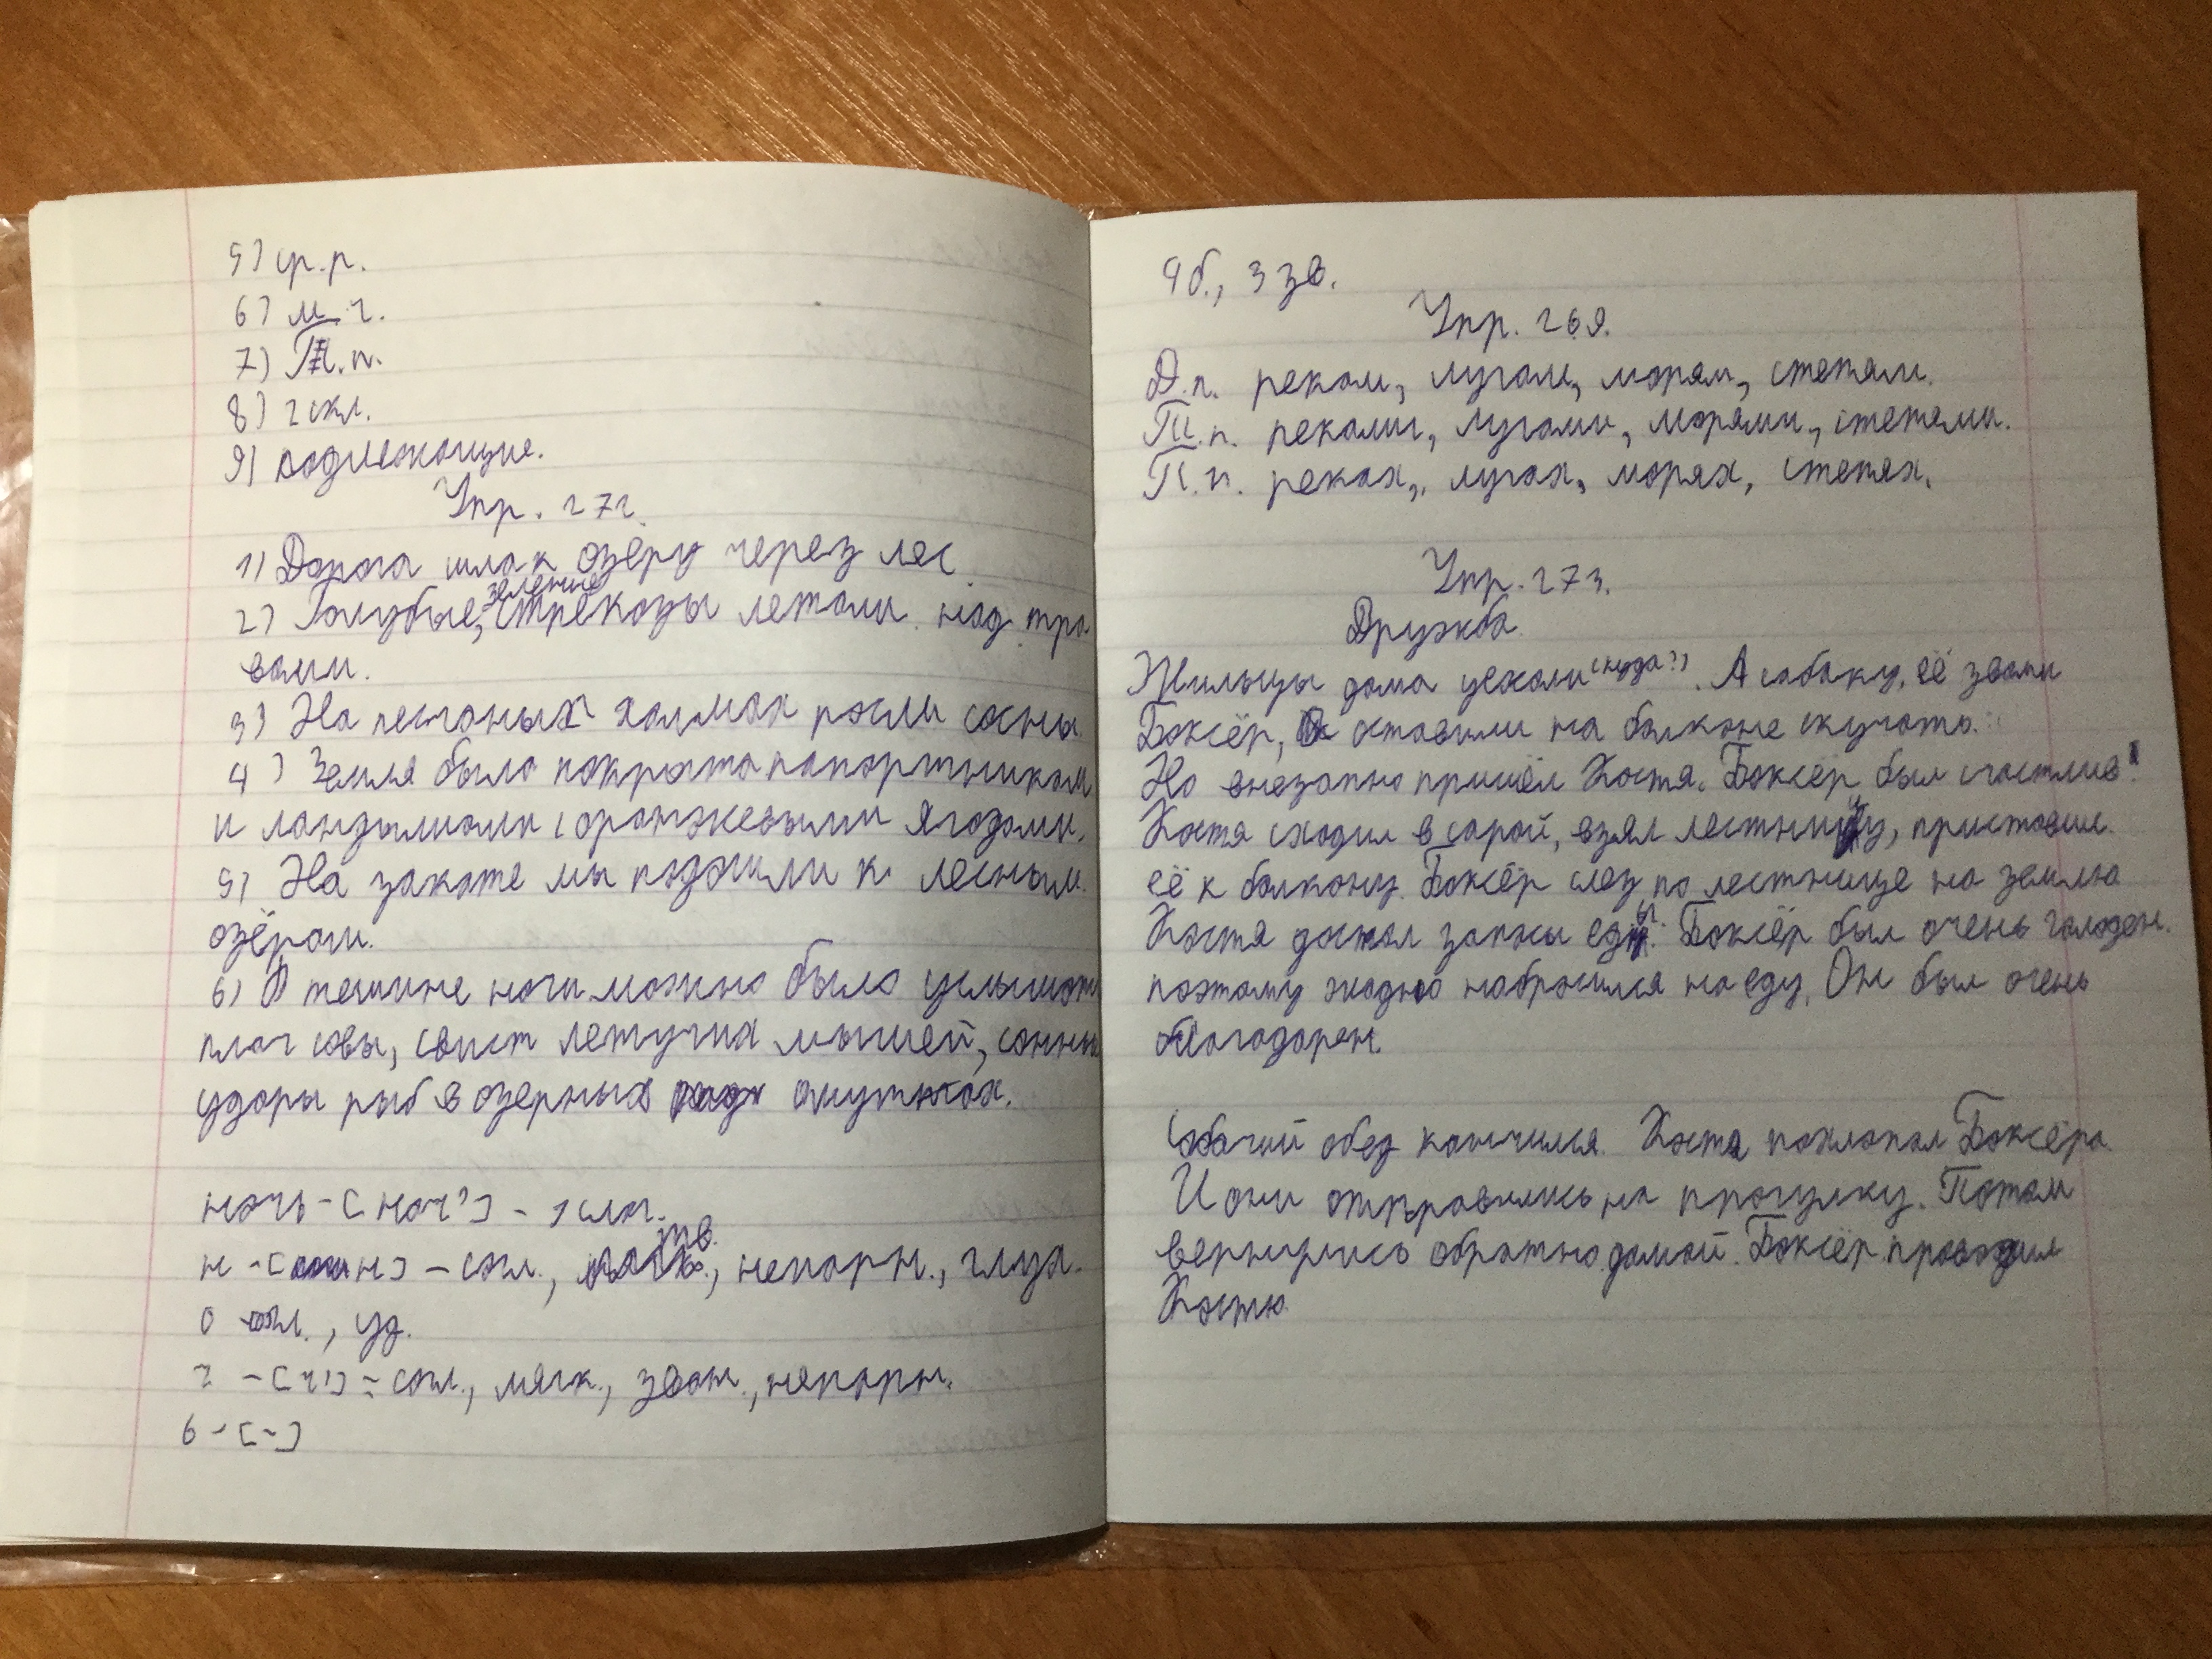 5) ср.р.
6) м.ч.
7) Т.п.
8) 2 скл.
9) подлежащие.
Упр. 272.
1) Дорога шла к озеру через лес.
2) Голубые, зеленые стрекозы летали над тра
вами.
3) На песчаных холмах росли сосны
4) Земля была покрыта папортником
и ландышами с оранжевыми ягодами.
5) На закате мы подошли к лесным
озёрам.
6) В тешине ночи можно было услышать
плач совы, свист летучих мышей, сонны
удары рыб в озерных омутках.
ночь - [ноч'] - 1 слог.
н - [н] - согл., тв., непарн., глух.
о гл., уд.
ч - [ч'] - согл., мягк., звон., непарн.
ь - [-]
4 б., 3 зв.
Упр. 269.
Д.п. рекам, лугам, морям, степям.
Т.п. реками, лугами, морями, степями.
П.п. реках, лугах, морях, степях.
Упр. 273.
Дружба.
Жильцы дома уехали (куда?). А собаку, её звали
Боксёр, оставили на балконе скучать.
Но внезапно пришёл Костя. Боксёр был счастлив!
Костя сходил в сарай, взял лестницу, приставил
её к балкону. Боксёр слез по лестнице на землю
Костя достал запасы еды. Боксёр был очень голоден.
поэтому жадно набросился на еду. Он был очень
благодарен.
Собачий обед кончился. Костя похлопал Боксёра.
И они отправились на прогулку. Потом
вернулись обратно домой. Боксёр проводил
Костю